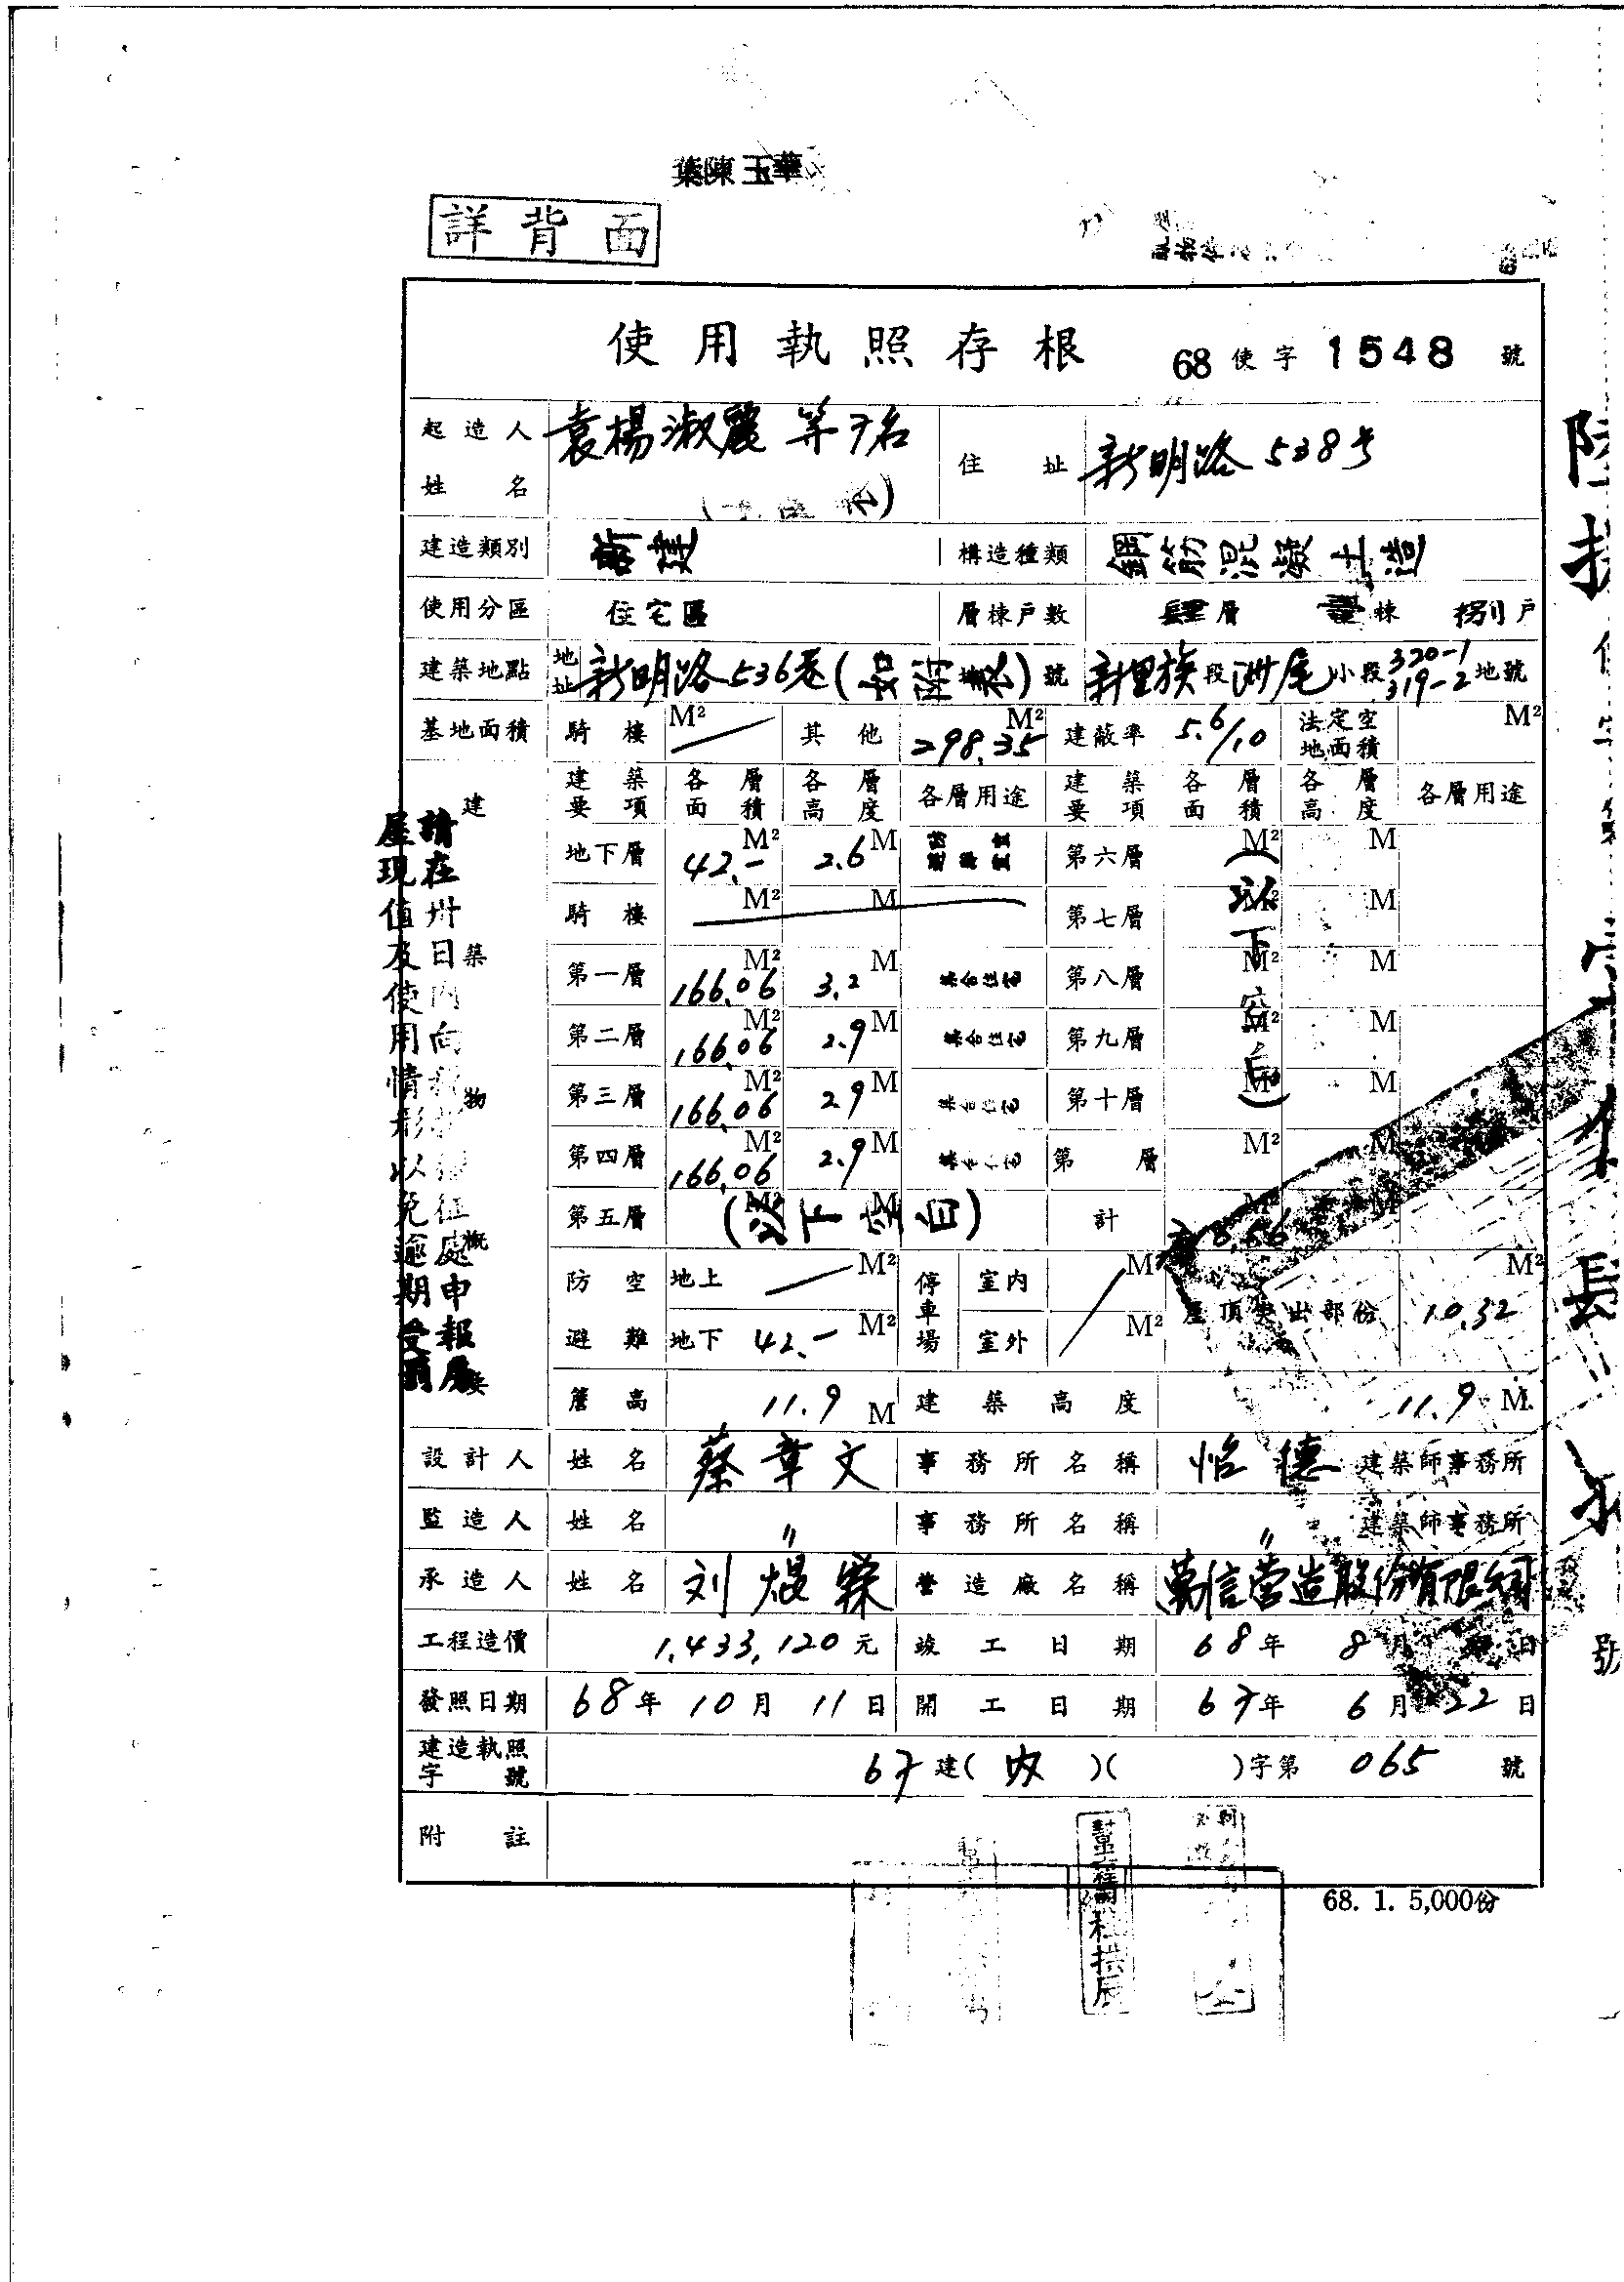 葉陳玉華
詳背面
使用執照存根 68使字1548號
起造人姓名 袁楊淑麗等7名 住址 新明路538号
建造類別 新建 構造種類 鋼筋混凝土造
使用分區 住宅區 層棟戶數 肆層 棟 捌戶
建築地點 地址 新明路536巷( )號 新里族段洲尾小段320-1 319-2地號
基地面積 騎樓 M² 其他 298.35 M² 建蔽率 5.6/10 法定空地面積 M²
建築物概要
建築要項 各層面積 各層高度 各層用途 建築要項 各層面積 各層高度 各層用途
地下層 42.- M² 2.6 M 第六層 M² M
騎樓 M² M 第七層 M² M
第一層 166.06 M² 3.2 M 集合住宅 第八層 M² M
第二層 166.06 M² 2.9 M 集合住宅 第九層 M² M
第三層 166.06 M² 2.9 M 集合住宅 第十層 M² M
第四層 166.06 M² 2.9 M 集合住宅 第 層 M² M
(以下空白)
第五層 M² M (以下空白) 計 M² M
防空避難 地上 M² 停車場 室內 M² 屋頂突出部份 10.32 M²
地下 42.- M² 室外 M²
簷高 11.9 M 建築高度 11.9 M
設計人 姓名 蔡章文 事務所名稱 怡德 建築師事務所
監造人 姓名 〃 事務所名稱 〃 建築師事務所
承造人 姓名 刘焜霖 營造廠名稱 萬信营造股份有限公司
工程造價 1,433,120元 竣工日期 68年8月 日
發照日期 68年10月11日 開工日期 67年6月22日
建造執照字號 67建(内)( )字第065號
附註
68. 1. 5,000份
請在卅日內向 征處申報房
屋現值及使用情形以免逾期受罰